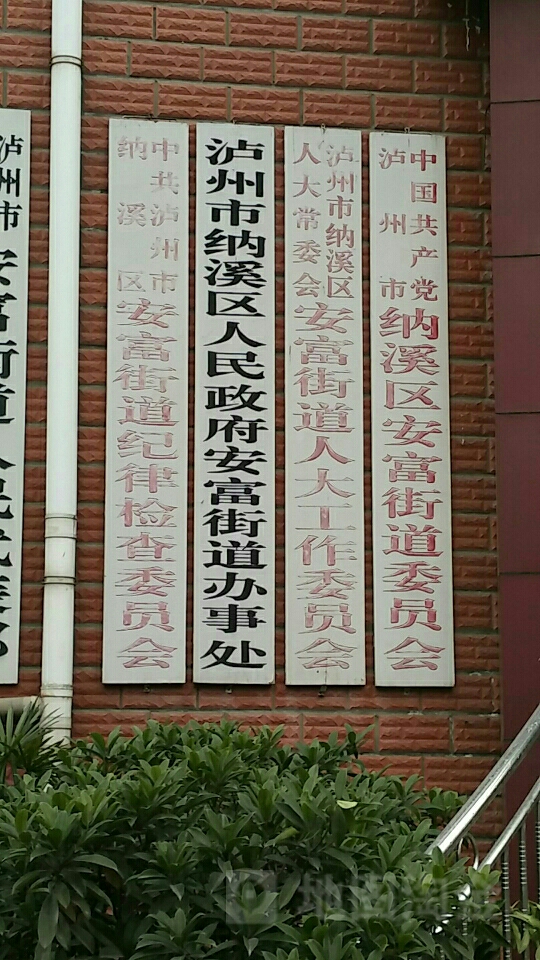 中国共产党
泸州市
纳溪区安富街道委员会
泸州市纳溪区
人大常委会
安富街道人大工作委员会
泸州市纳溪区人民政府安富街道办事处
中共泸州市
纳溪区
安富街道纪律检查委员会
泸州市
安富街道人民武装部